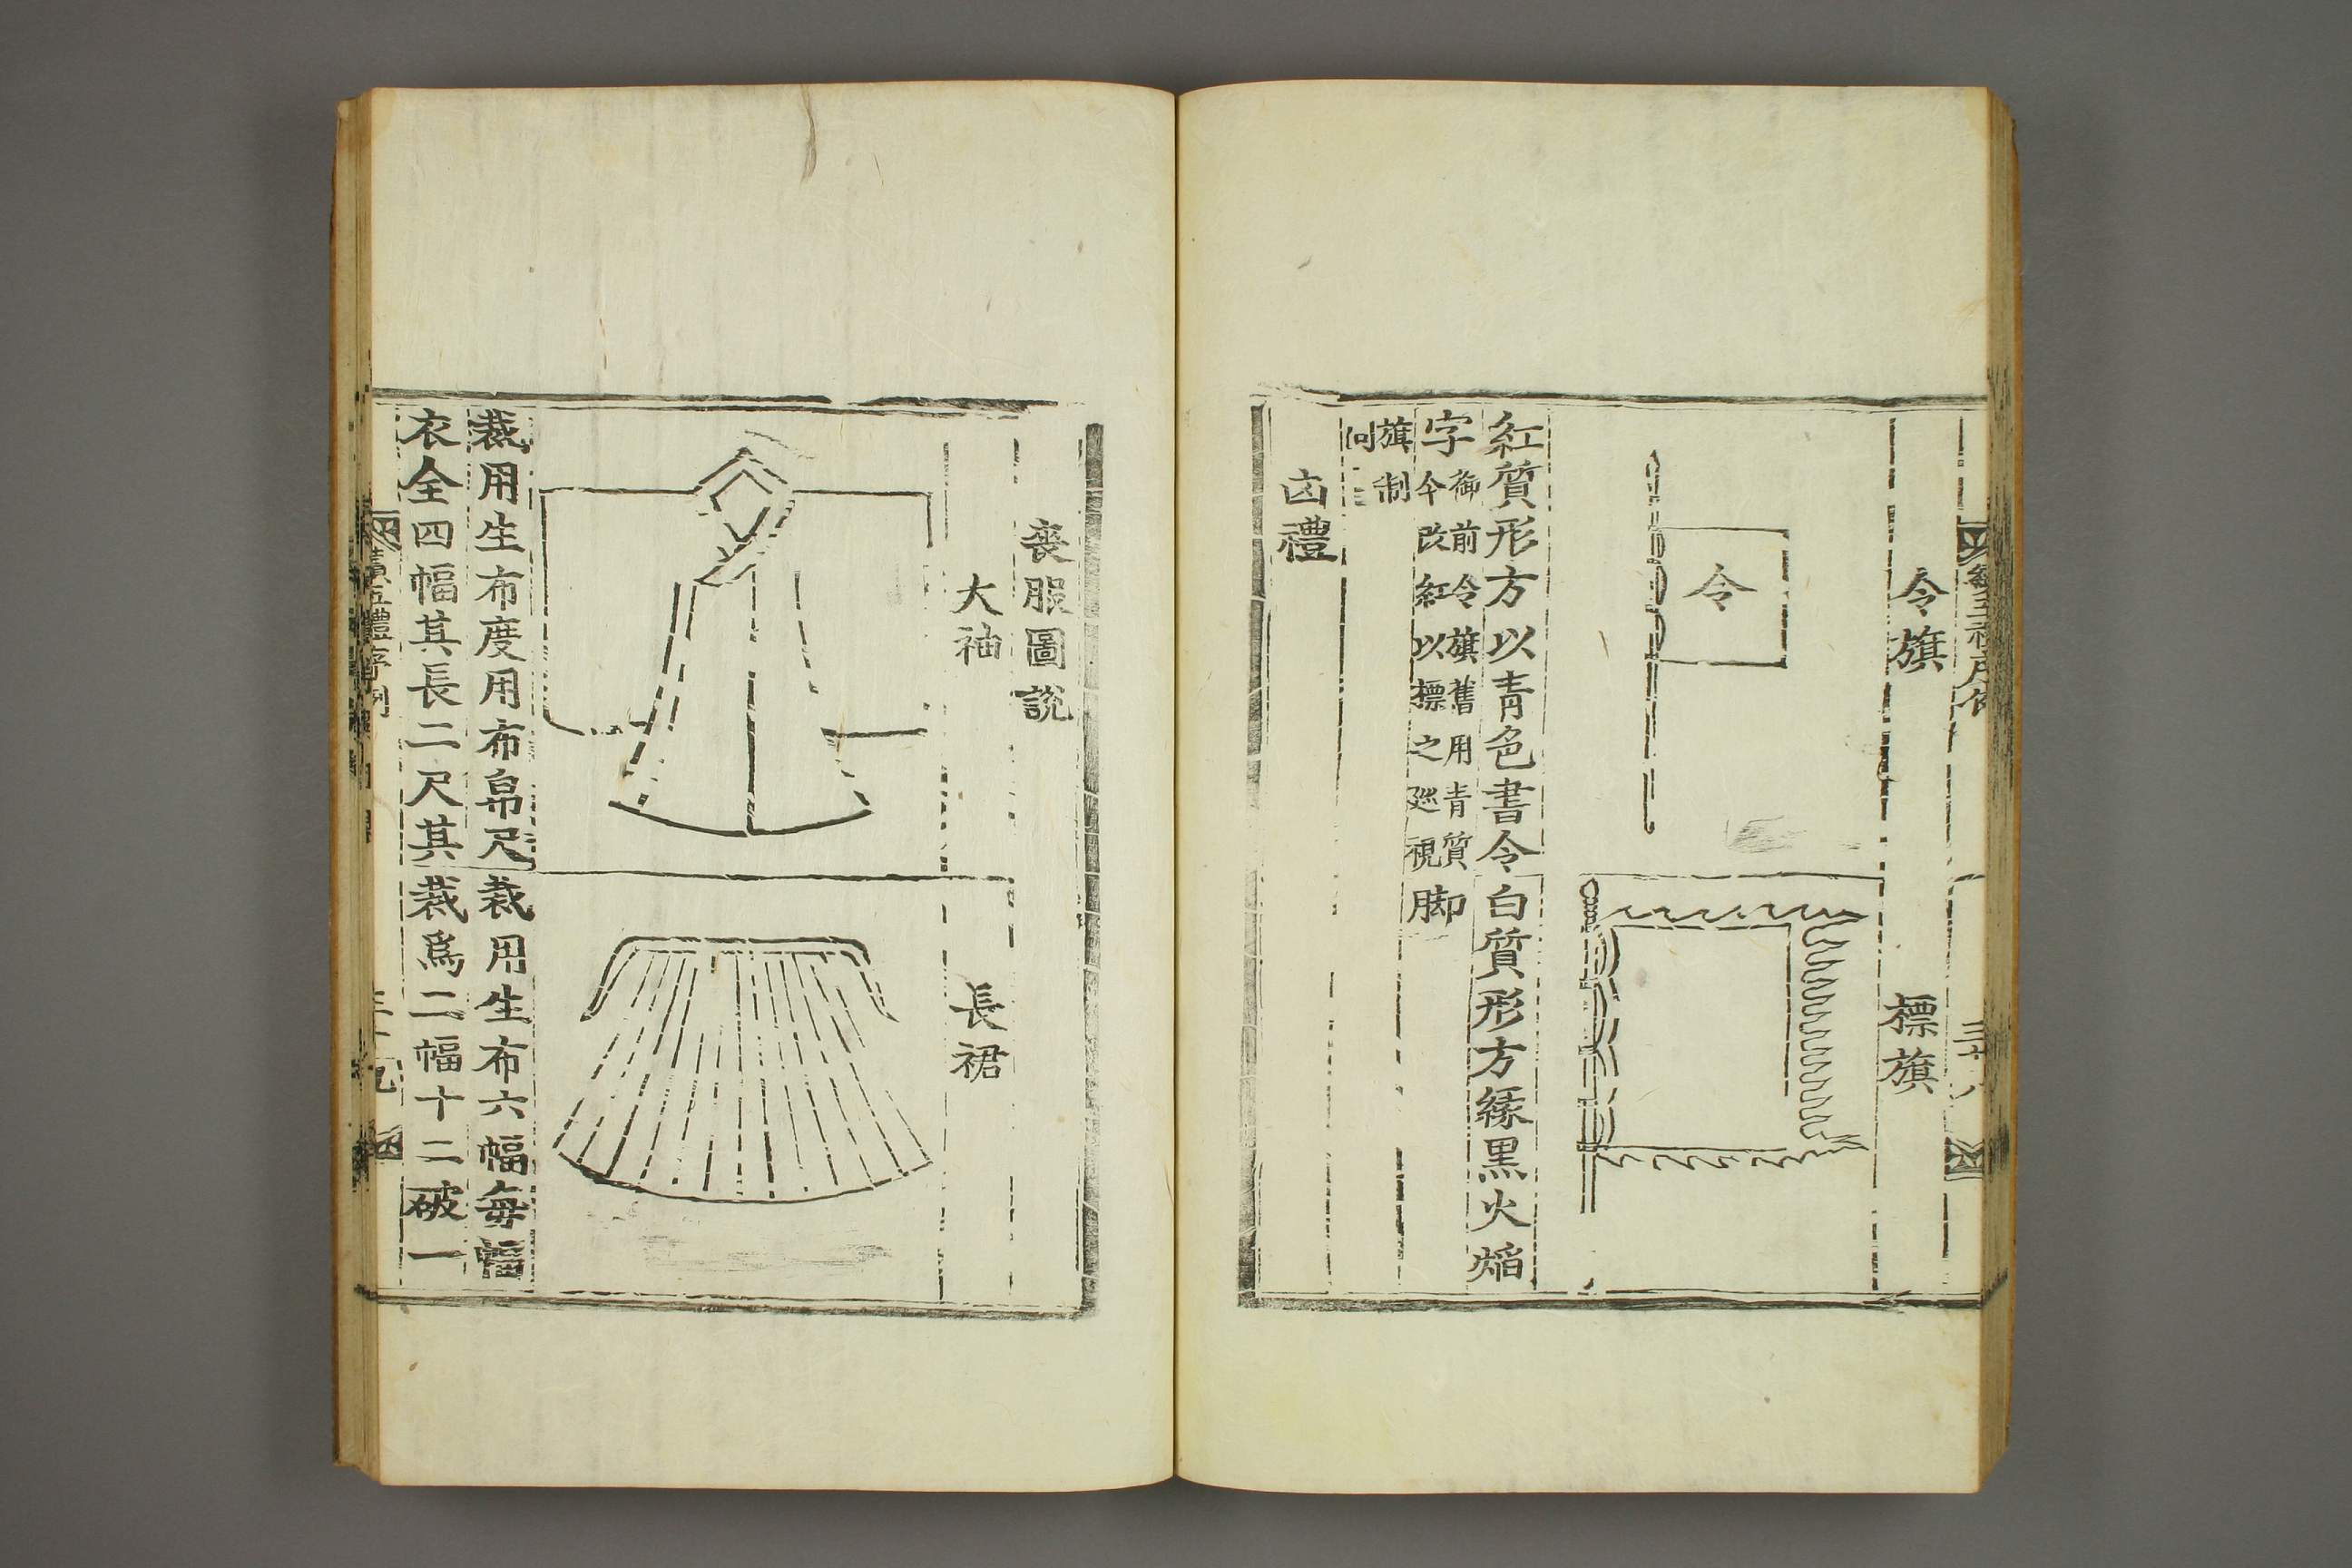 令旗
令
紅質形方以青色書令
字御前令旗舊用青質
今改紅以標之廵視
旗制
同
標旗
白質形方緣黒火焰
脚
凶禮
喪服圖說
大袖
裁用生布度用布帛尺
衣全四幅其長二尺其
長裙
裁用生布六幅每幅
裁爲二幅十二破一
續五禮序例
三十九